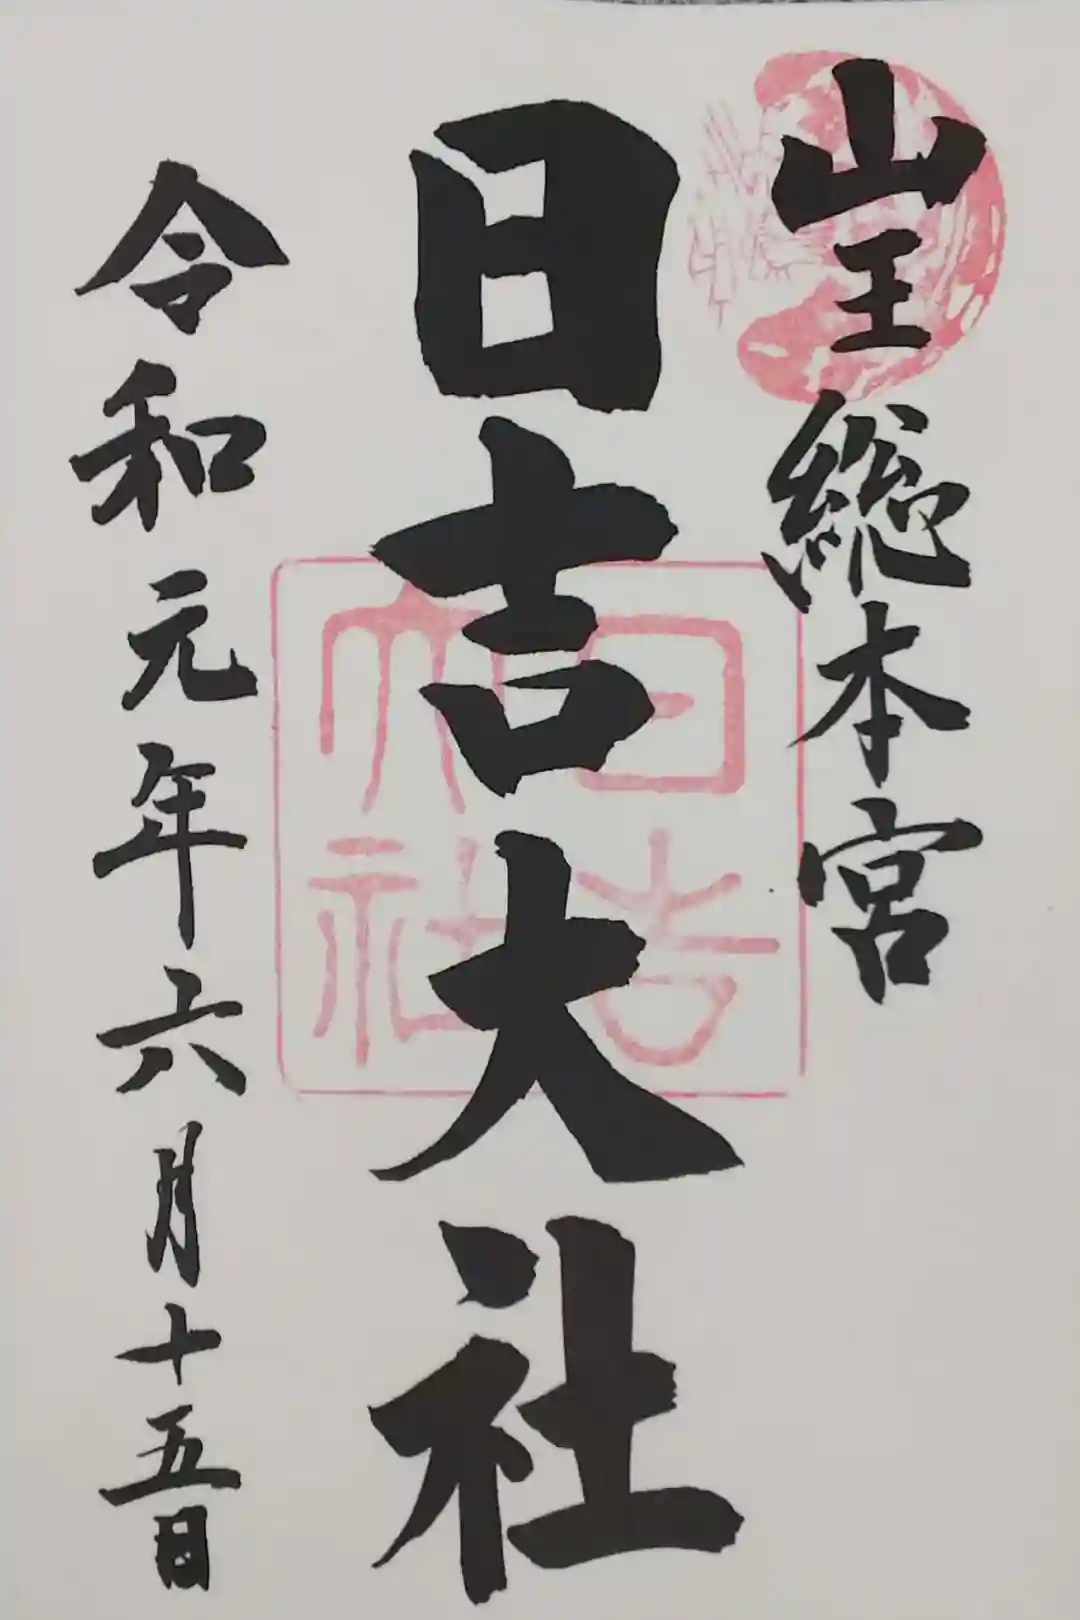 山王総本宮
日吉大社
日吉大社
令和元年六月十五日